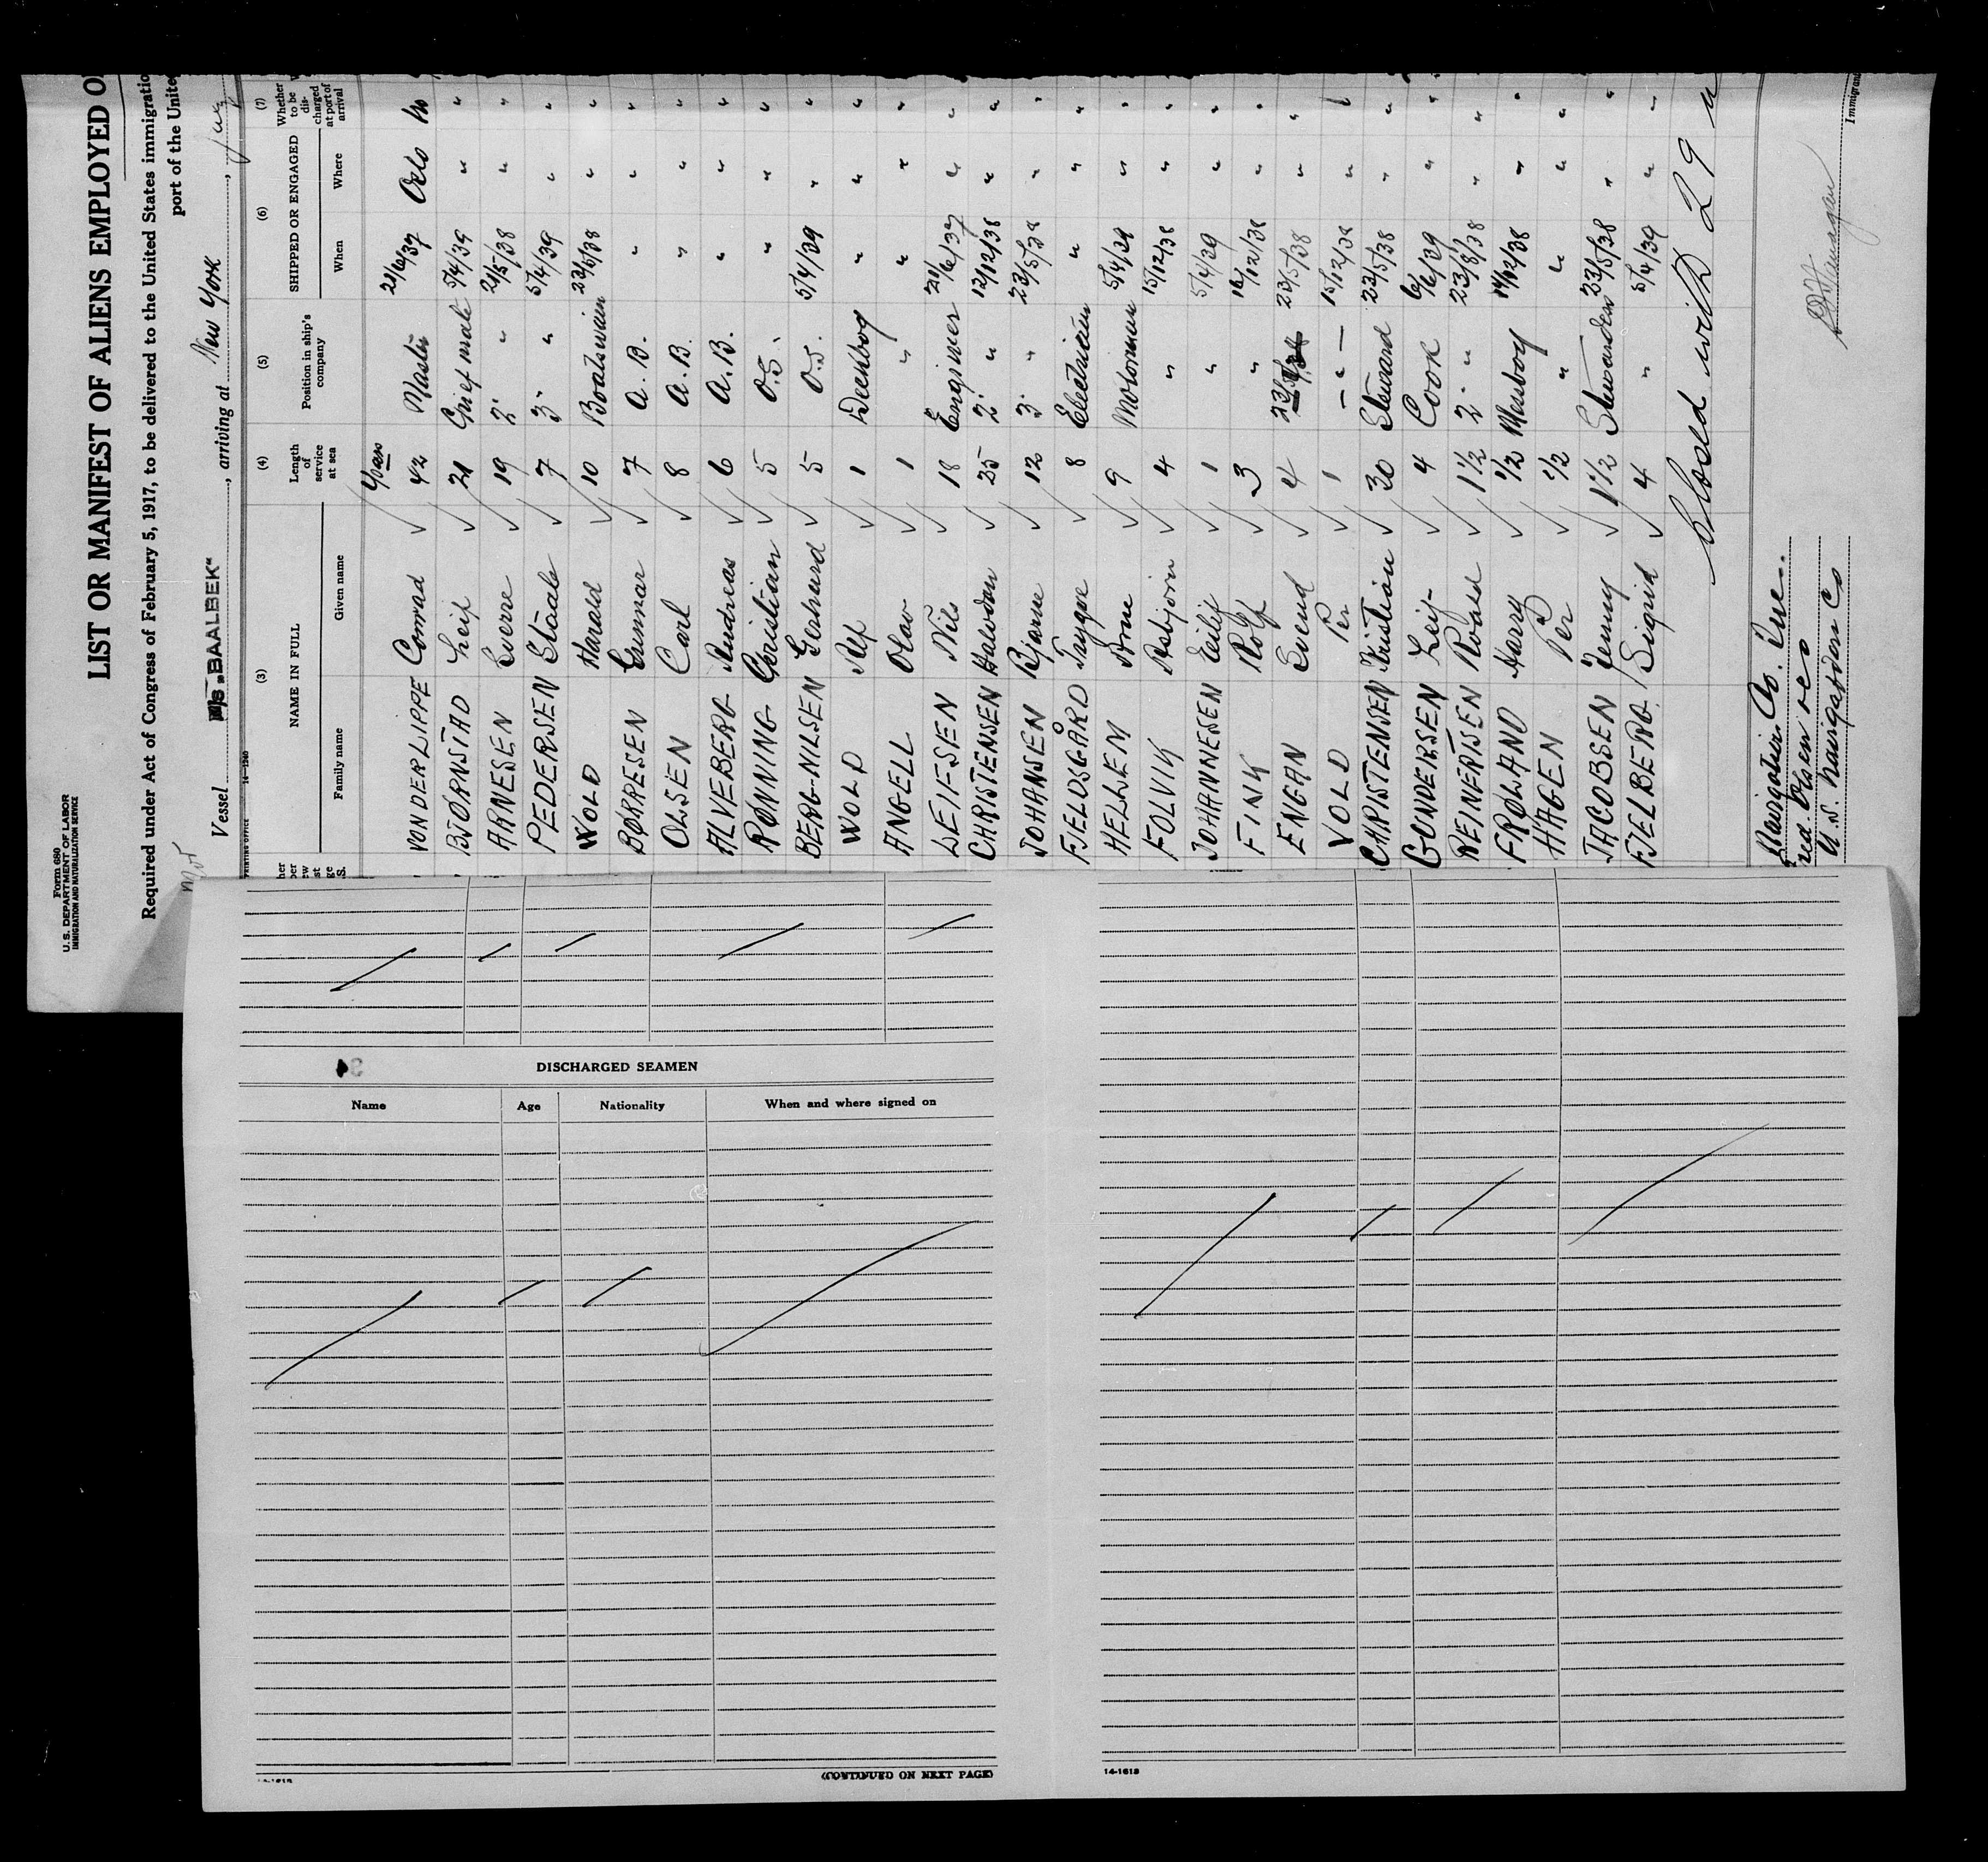 Form 680
U. S. DEPARTMENT OF LABOR
IMMIGRATION AND NATURALIZATION SERVICE
LIST OR MANIFEST OF ALIENS EMPLOYED O
Required under Act of Congress of February 5, 1917, to be delivered to the United States immigratio
port of the United
Vessel M/S „BAALBEK“, arriving at New York,
PRINTING OFFICE 14—1240
(3) (4) (5) (6) (7)
NAME IN FULL Length of service at sea Position in ship's company SHIPPED OR ENGAGED Whether to be discharged at port of arrival
Family name Given name When Where
Years
VON DER LIPPE Conrad 42 Master 21/6/37 Oslo No
BJØRNSTAD Leif 21 Chief mate 5/4/39 " "
ARNESEN Sverre 19 2' " 21/5/38 " "
PEDERSEN Ståale 7 3' " 5/4/39 " "
WOLD Harald 10 Boatswain 23/5/38 " "
BØRRESEN Gunnar 7 A. B. " " "
OLSEN Carl 8 A. B. " " "
ALVEBERG Andreas 6 A. B. " " "
RØNNING Christian 5 O.S. " " "
BERG-NILSEN Gerhard 5 O.S. 5/4/39 " "
WOLD Alf 1 Deckboy " " "
ANGELL Olav 1 " " " "
LEIFSEN Nils 18 Engineer 21/6/37 " "
CHRISTENSEN Halvdan 25 2' " 12/12/38 " "
JOHANSEN Bjarne 12 3' " 23/5/38 " "
FJELDSGÅRD Trygve 8 Electrician " " "
HELLEM Arne 9 Motorman 5/4/39 " "
FOLVIK Asbjørn 4 " 15/12/38 " "
JOHANNESEN Eilif 1 " 5/4/39 " "
FINK Rolf 3 " 16/12/38 " "
ENGAN Svend 4 23/5/38 " "
VOLD Per 1 — " — 15/12/38 " "
CHRISTENSEN Kristian 30 Steward 23/5/38 " "
GUNDERSEN Leif 4 Cook 6/6/39 " "
REINERTSEN Roald 1 1/2 2' " 23/8/38 " "
FRØLAND Harry 1/2 Messboy 14/12/38 " "
HAGEN Per 1/2 " " " "
JACOBSEN Jenny 1 1/2 Stewardess 23/5/38 " "
FJELBERG Sigrid 4 " 5/4/39 " "
Closed with 29
Navigation Co. Inc.
red. Olsen & Co
U.S. Navigation Co
Immigrant
DISCHARGED SEAMEN
Name Age Nationality When and where signed on
(CONTINUED ON NEXT PAGE)
14-1613